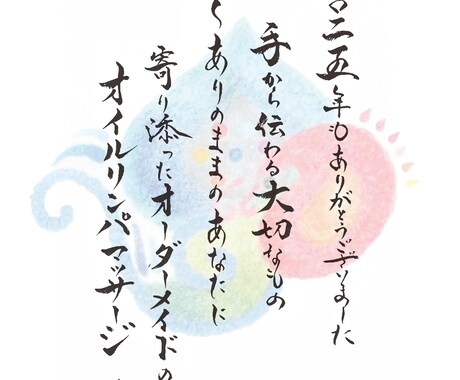 二五年もありがとうございました
手から伝わる大切なもの
ありのままのあなたに
寄り添ったオーダーメイドの
オイルリンパマッサージ